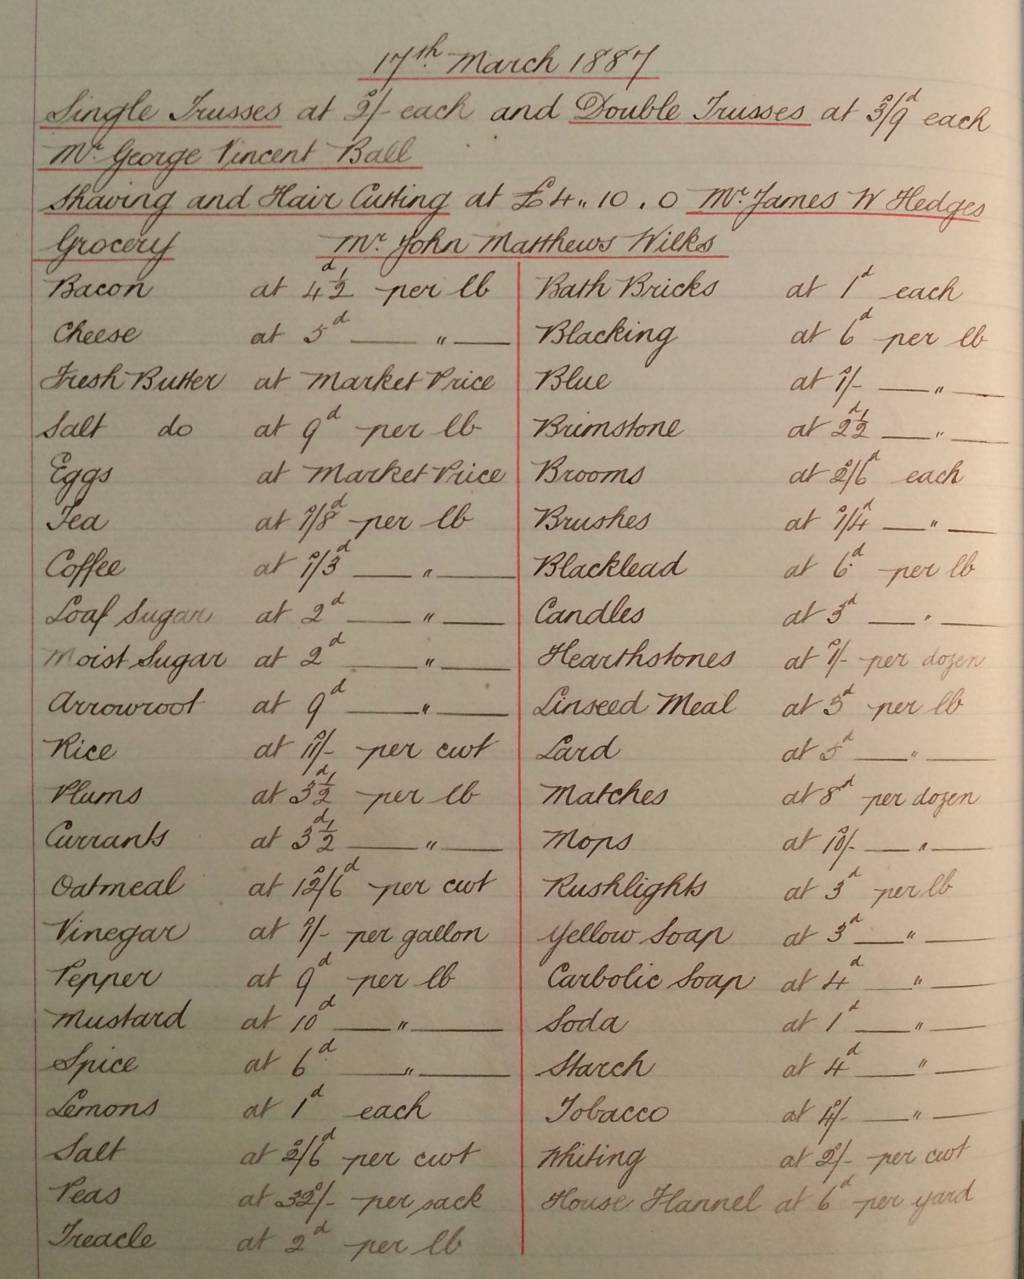 17th March 1887
Single Trusses at 2/- each and Double Trusses at 3/9d each
Mr George Vincent Ball
Shaving and Hair Cutting at £4 „ 10 . 0 Mr James W Hedges
Grocery Mr John Matthews Wilks
Bacon at 4d½ per lb
Cheese at 5d — „ —
Fresh Butter at Market Price
Salt do at 9d per lb
Eggs at Market Price
Tea at 1/8d per lb
Coffee at 1/3d — „ —
Loaf Sugar at 2d — „ —
Moist Sugar at 2d — „ —
Arrowroot at 9d — „ —
Rice at 11/- per cwt
Plums at 3d½ per lb
Currants at 3d½ — „ —
Oatmeal at 12/6d per cwt
Vinegar at 1/- per gallon
Pepper at 9d per lb
Mustard at 10d — „ —
Spice at 6d — „ —
Lemons at 1d each
Salt at 2/6d per cwt
Peas at 32/- per sack
Treacle at 2d per lb
Bath Bricks at 1d each
Blacking at 6d per lb
Blue at 1/- — „ —
Brimstone at 2d½ — „ —
Brooms at 2/6d each
Brushes at 1/4d — „ —
Blacklead at 6d per lb
Candles at 3d — „ —
Hearthstones at 1/- per dozen
Linseed Meal at 3d per lb
Lard at 5d — „ —
Matches at 8d per dozen
Mops at 10/- — „ —
Rushlights at 3d per lb
Yellow Soap at 3d — „ —
Carbolic Soap at 4d — „ —
Soda at 1d — „ —
Starch at 4d — „ —
Tobacco at 4/- — „ —
Whiting at 2/- per cwt
House Flannel at 6d per yard